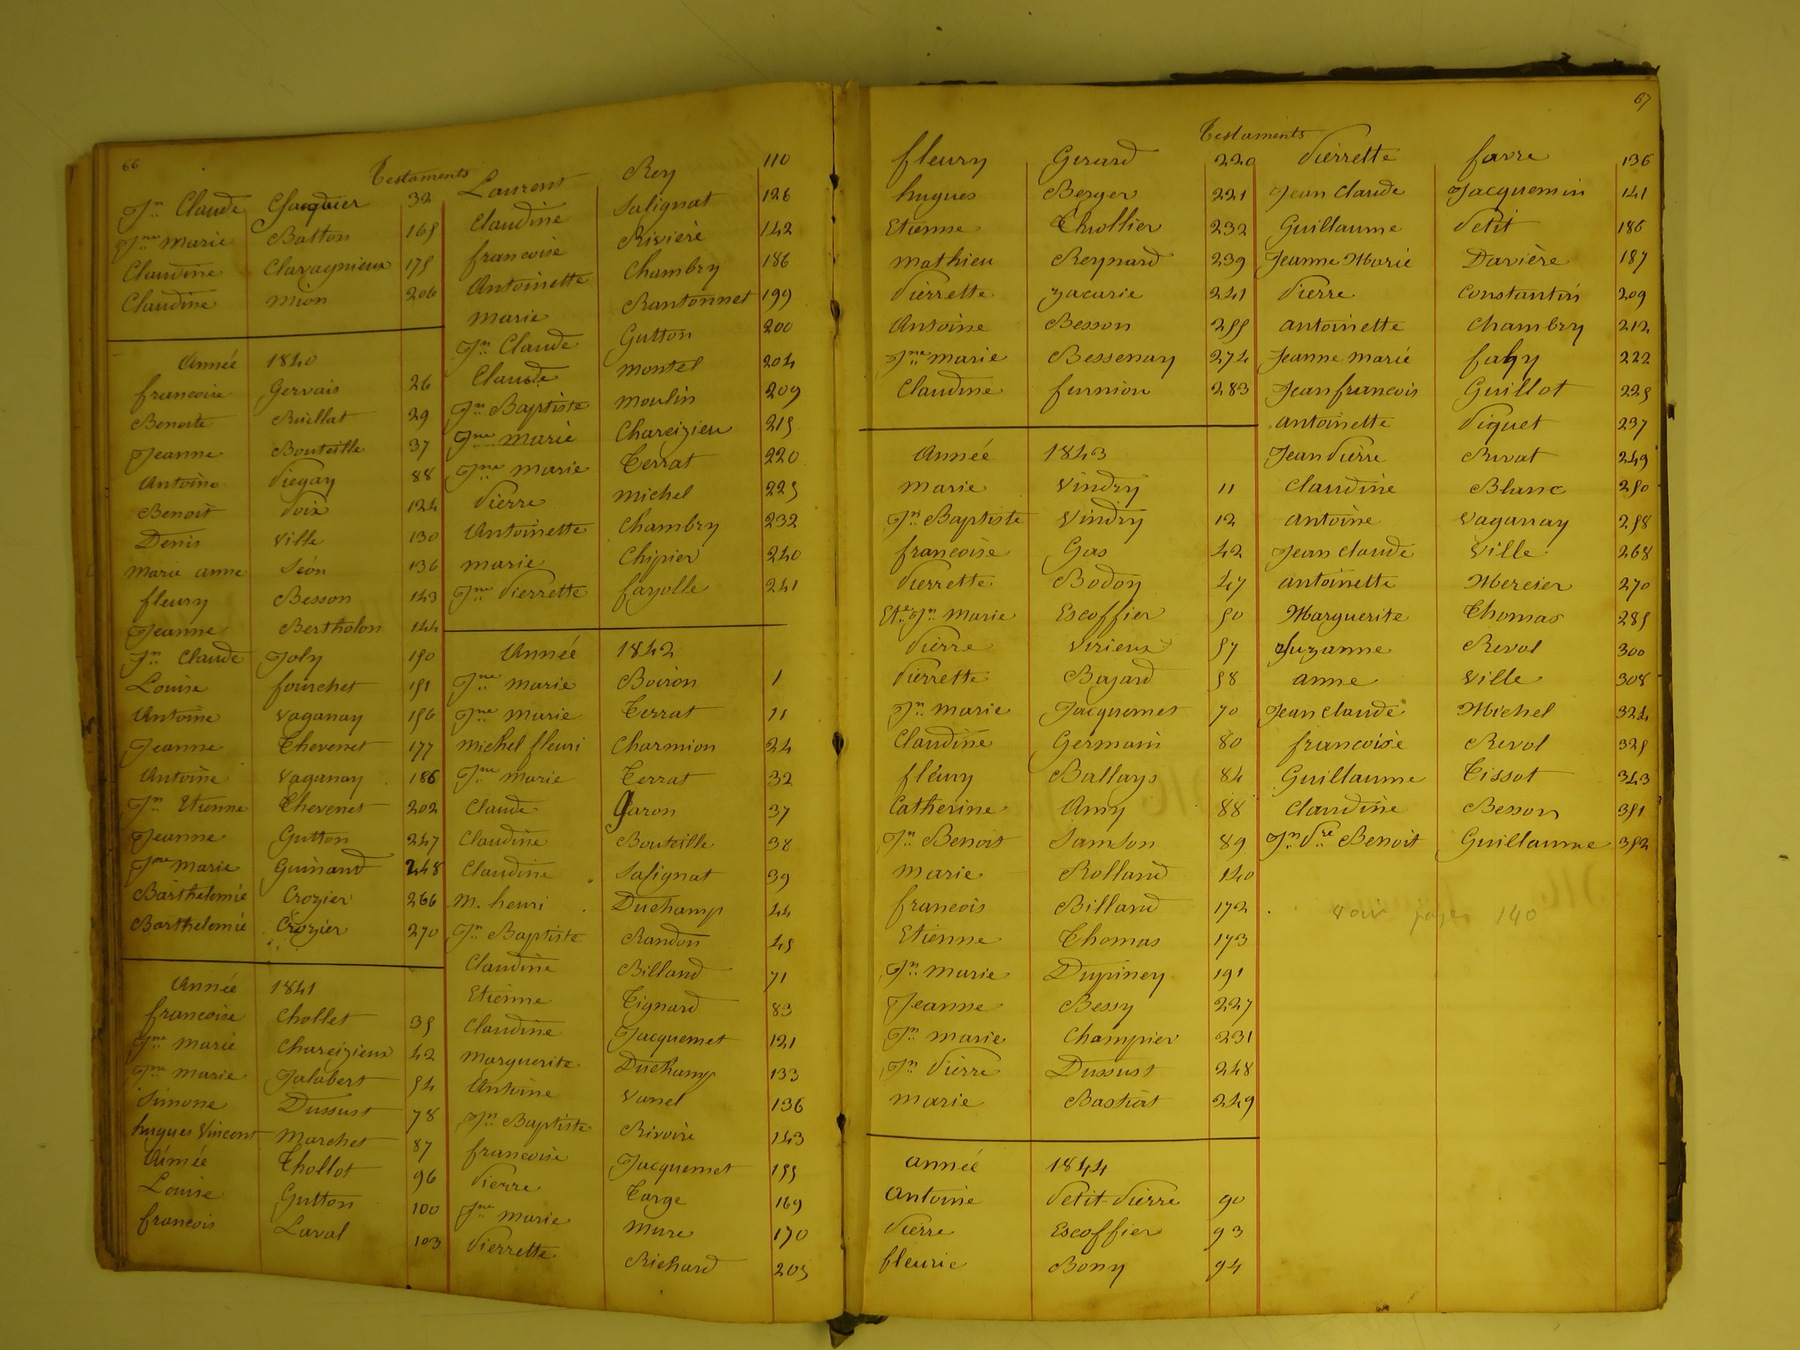 66
Testaments
Jn Claude Jacquier 32
Jne Marie Batton 165
Claudine Clavagnieux 175
Claudine Mion 206
Année 1840
francoise Gervais 26
Benoite Ruillat 29
Jeanne Bouteille 37
Antoine Piegay 88
Benoit Poix 124
Denis Ville 130
Marie anne Séon 136
fleury Besson 143
Jeanne Bertholon 144
Jn Claude Joly 150
Louise fourchet 151
Antoine Vaganay 156
Jeanne Thevenet 177
Antoine Vaganay 186
Jn Etienne Thevenet 202
Jeanne Gutton 247
Jne Marie Guinand 248
Barthelemie Crozier 266
Barthelemie Crozier 270
Année 1841
francoise Chollet 35
Jne Marie Chareizieux 42
Jne Marie Jalabert 54
Simone Dussust 78
hugues Vincent Marchet 87
Aimée Thollot 96
Louise Gutton 100
francois Laval 103
Laurent Rey 110
Claudine Salignat 126
francoise Rivière 142
Antoinette Chambry 186
Marie Rantonnet 199
Jn Claude Gutton 200
Claude Montel 204
Jn Baptiste Moulin 209
Jne Marie Chareizieu 215
Jne Marie Terrat 220
Pierre Michel 225
Antoinette Chambry 232
Marie Chipier 240
Jne Pierrette fayolle 241
Année 1842
Jne Marie Boiron 1
Jne Marie Terrat 11
Michel fleuri Charmion 24
Jne Marie Terrat 32
Claude Garon 37
Claudine Bouteille 38
Claudine Salignat 39
M. henri Duchamp 44
Jn Baptiste Randon 45
Claudine Billand 71
Etienne Tignard 83
Claudine Jacquemet 121
Marguerite Duchamp 133
Antoine Vanel 136
Jn Baptiste Rivoire 143
francoise Jacquemet 155
Pierre Targe 169
Jne Marie Mure 170
Pierrette Richard 205
67
Testaments
fleury Gerard 220
hugues Berger 221
Etienne Thollier 232
Mathieu Reynard 239
Pierrette Zacarie 241
Antoine Besson 255
Jne Marie Bessenay 274
Claudine furnion 283
Année 1843
Marie Vindry 11
Jn Baptiste Vindry 12
francoise Gas 42
Pierrette Bodoy 47
Ete Jn Marie Escoffier 50
Pierre Virieux 57
Pierrette Bajard 58
Jn Marie Jacquemet 70
Claudine Germain 80
fleury Ballays 84
Catherine Amy 88
Jn Benoit Samson 89
Marie Rolland 140
francois Billand 172
Etienne Thomas 173
Jn Marie Dupiney 191
Jeanne Bessy 227
Jn Marie Champier 231
Jn Pierre Dussust 248
Marie Bastiat 249
année 1844
Antoine Petit-Pierre 90
Pierre Escoffier 93
fleurie Bony 94
Pierrette favre 136
Jean Claude Jacquemin 141
Guillaume Petit 186
Jeanne Marie Davière 187
Pierre Constantin 209
antoinette Chambry 212
Jeanne Marie fahy 222
Jean francois Guillot 225
antoinette Piquet 237
Jean Pierre Rivat 249
Claudine Blanc 250
antoine Vaganay 258
Jean Claude Ville 268
antoinette Mercier 270
Marguerite Thomas 285
Suzanne Revol 300
anne Ville 308
Jean Claude Michel 324
francoise Revol 325
Guillaume Tissot 343
Claudine Besson 351
Jn Pre Benoit Guillaume 352
voir pages 140